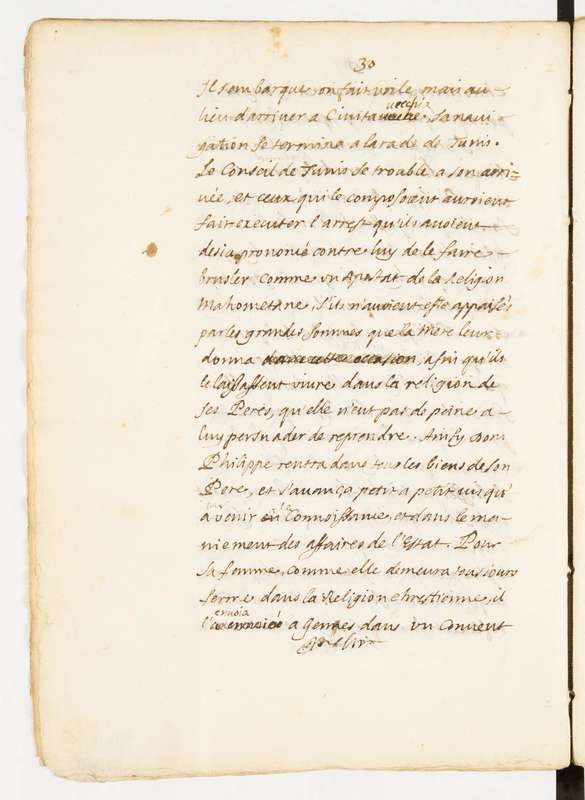 30
Il s'embarque, on fait voile, mais au
lieu d'arriver a Civita vecchia, sa navi-
gation se termina a la rade de Tunis.
Le Conseil de Tunis se trouble a son arri-
vée, et ceux qui le composoient auroient
fait executer l'arrest qu'ils avoient
desia prononcé contre luy de le faire
brusler comme un Apostat de la Religion
Mahometane, s'ils n'avoient esté appaisés
par les grandes sommes que la Mere leur
donna dans cette occasion, afin qu'ils
le laissassent vivre dans la religion de
ses Peres, qu'elle n'eut pas de peine a
luy persuader de reprendre. Ainsy Dom
Philippe rentra dans tous les biens de son
Pere, et s'avança petit a petit iusqu'
a venir en Connoissance, et dans le ma-
niement des affaires de l'Estat. Pour
sa femme, comme elle demeura tousiours
ferme dans la Religion chrestienne, il
l'envoia a Gennes dans un Convent